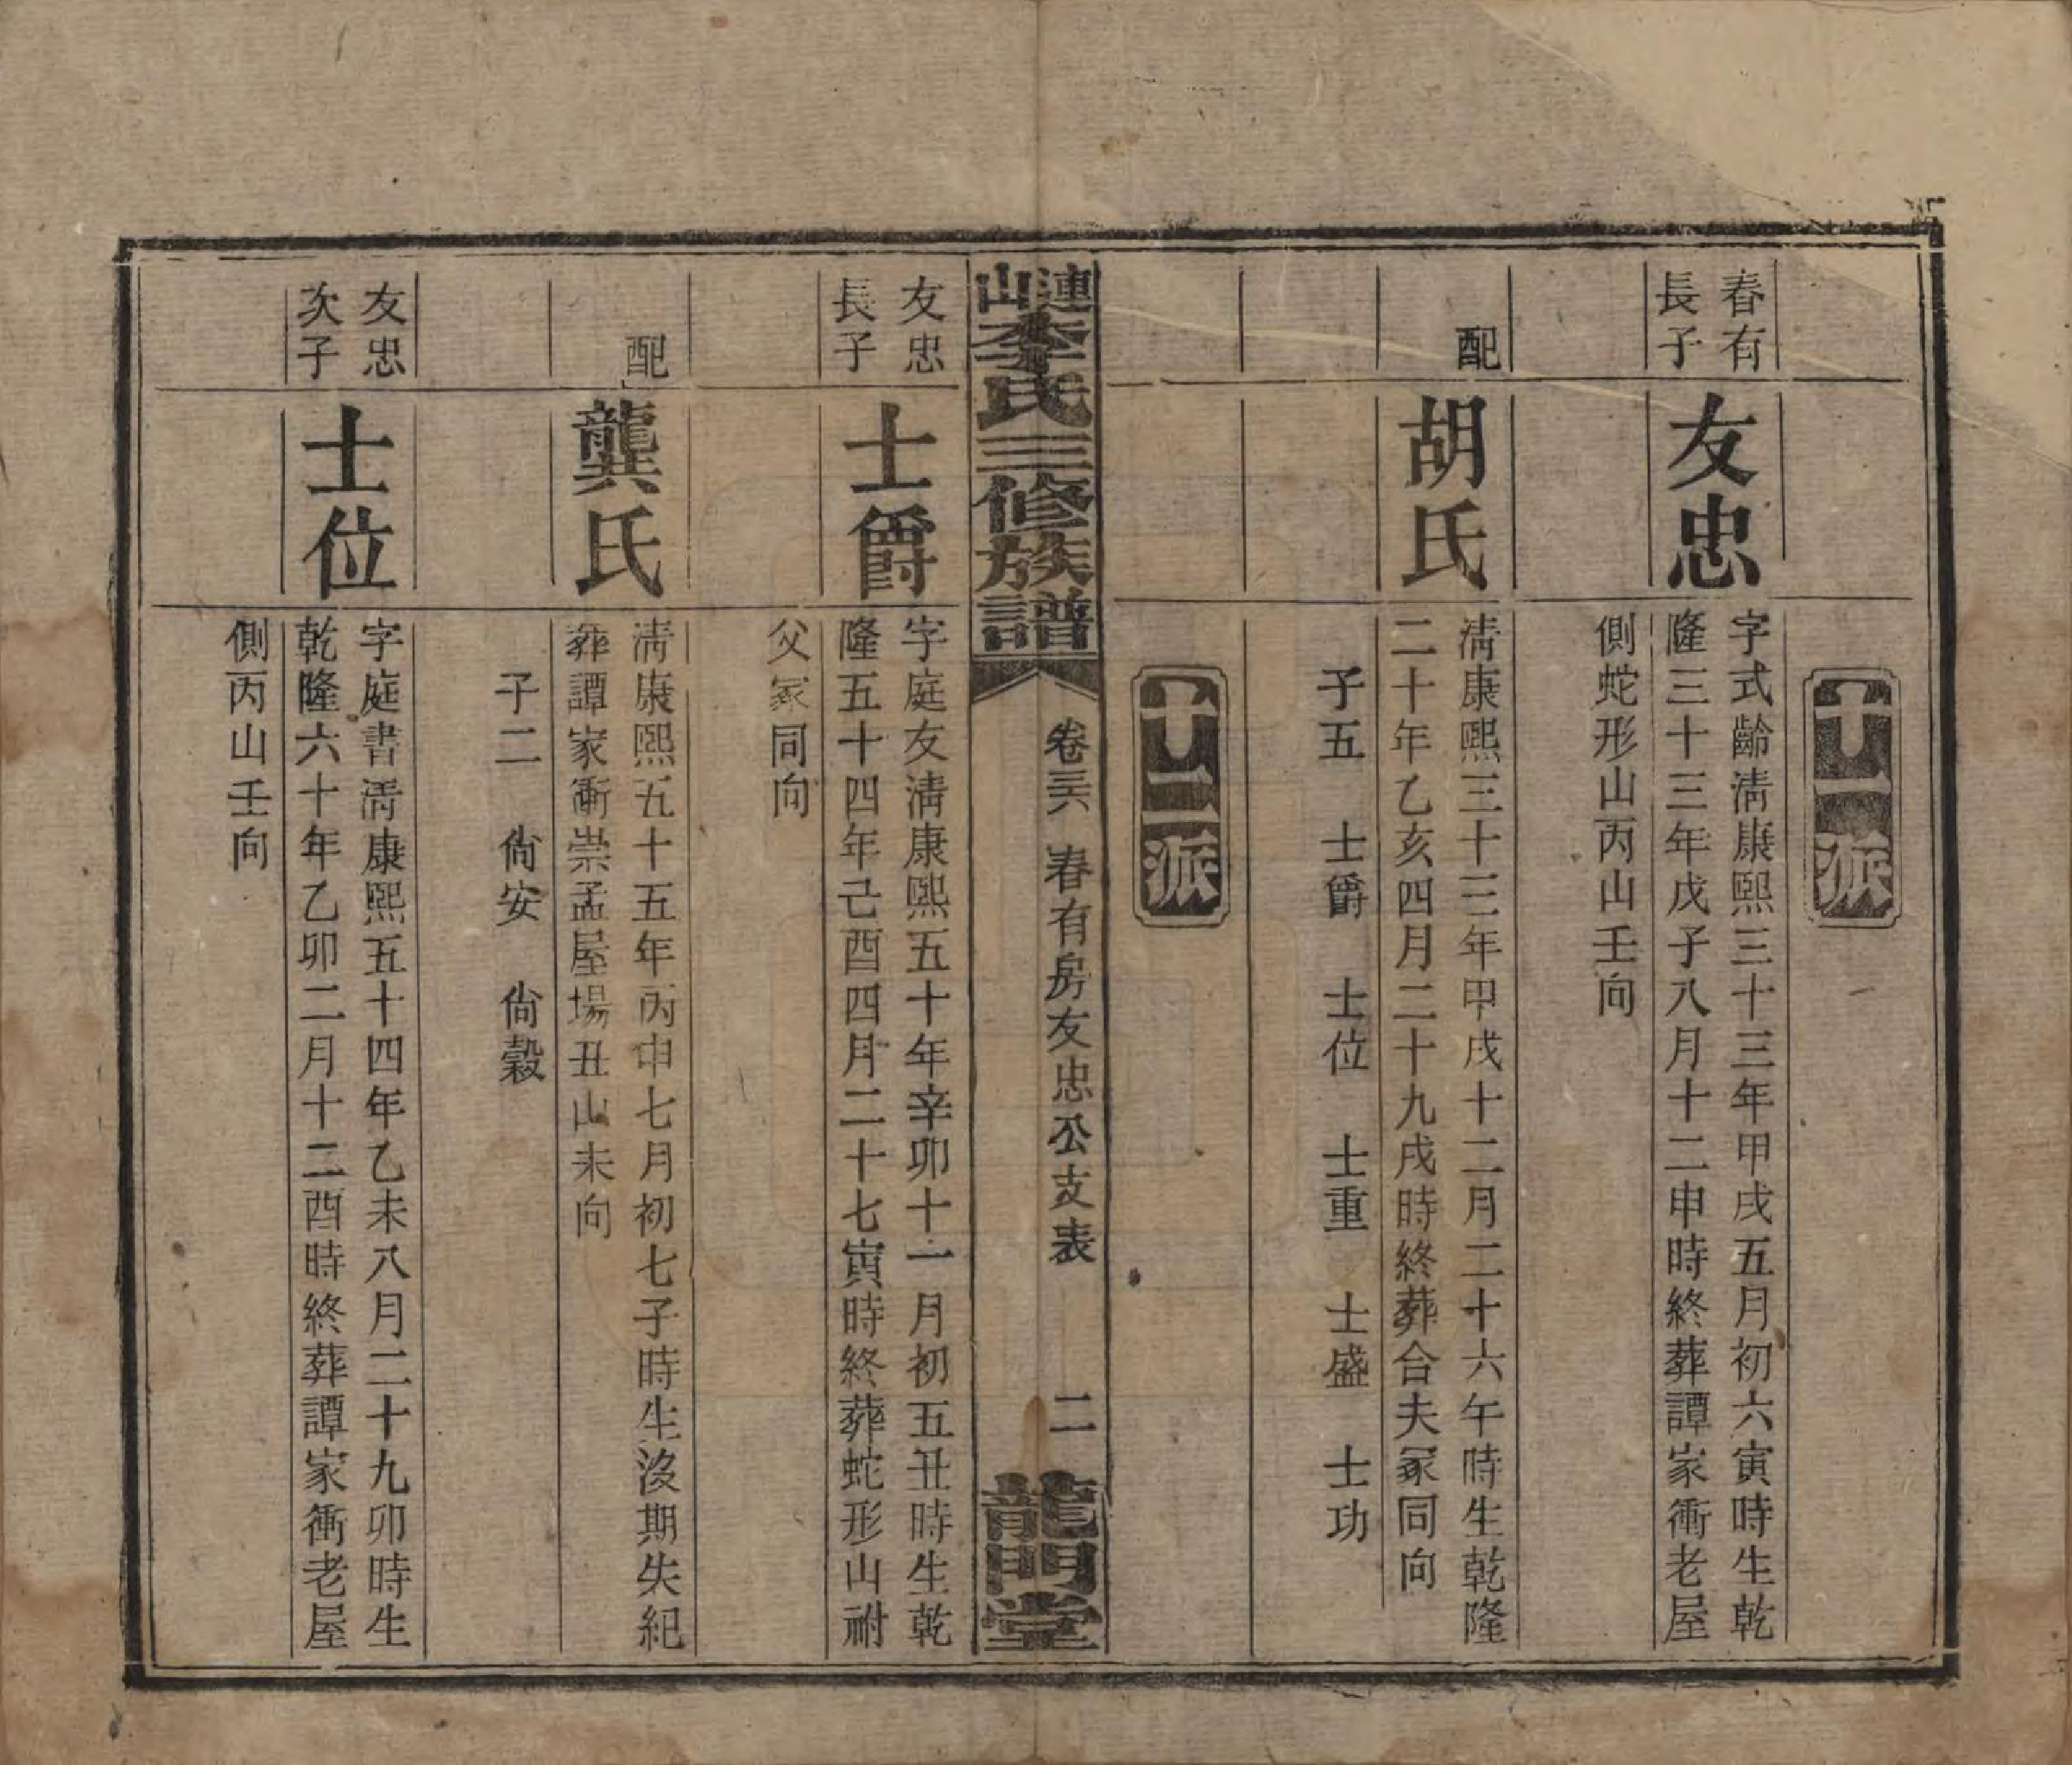 十一派
春有
長子
友忠
字式齡淸康熙三十三年甲戌五月初六寅時生乾
隆三十三年戊子八月十二申時終葬譚家衝老屋
側蛇形山丙山壬向
配
胡氏
淸康熙三十三年甲戌十二月二十六午時生乾隆
二十年乙亥四月二十九戌時終葬合夫冢同向
子五　士爵　士位　士重　士盛　士功
十二派
漣山李氏三修族譜
卷三六　春有房友忠公支表　二
龍門堂
友忠
長子
士爵
字庭友淸康熙五十年辛卯十一月初五丑時生乾
隆五十四年己酉四月二十七寅時終葬蛇形山祔
父冢同向
配
龔氏
淸康熙五十五年丙申七月初七子時生沒期失紀
葬譚家衝崇孟屋場丑山未向
子二　尙安　尙穀
友忠
次子
士位
字庭書淸康熙五十四年乙未八月二十九卯時生
乾隆六十年乙卯二月十二酉時終葬譚家衝老屋
側丙山壬向